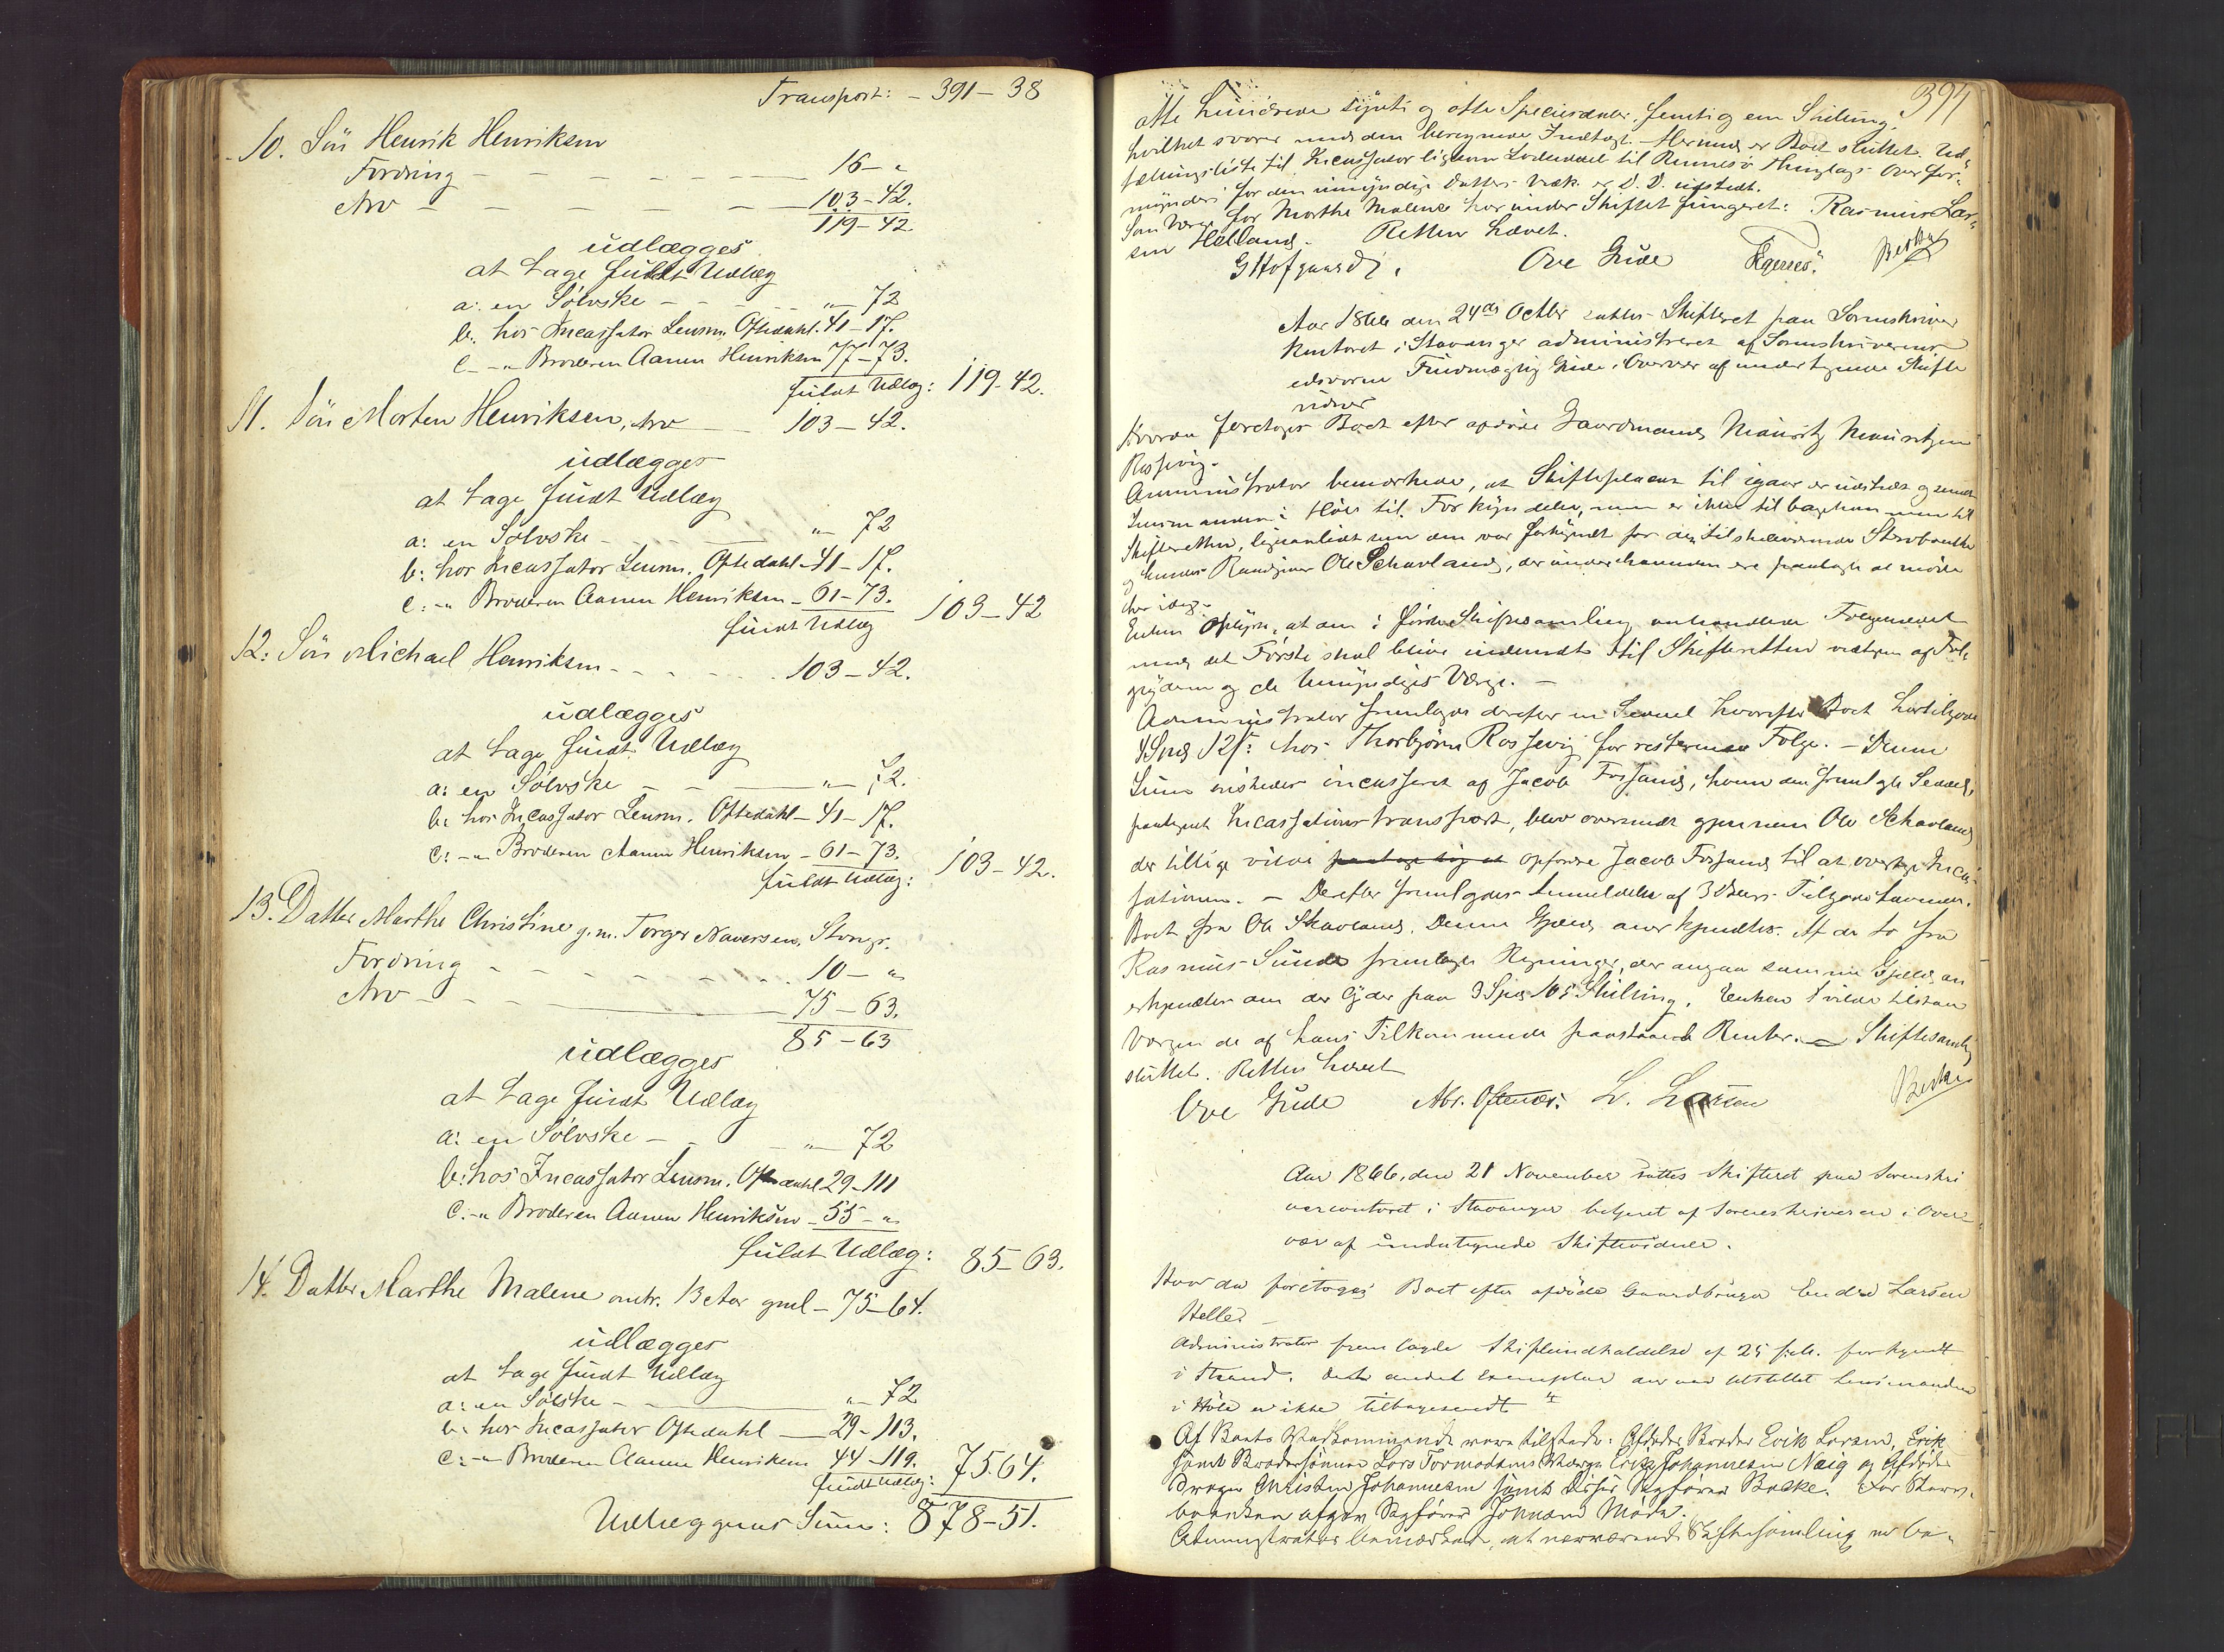 Transport: - 391 - 38
10. Sön Henrik Henriksen
Fordring - - - - - 16 - "
Arv - - - - - 103 - 42.
119 - 42.
udlægges
at tage fuldt Udlæg
a: en Sölvske - - - " - 72
b. hos Incassator Lensm. Oftedahl. 41 - 17.
c - " Broderen Aanen Henriksen 77 - 73.
fuldt Udlæg: 119 - 42.
11. Sön Morten Henriksen, Arv - 103 - 42.
udlægges
at tage fuldt Udlæg
a: en Sölvske - " 72
b: hos Incassator Lensm. Oftedahl - 41 - 17.
c: - " Broderen Aanen Henriksen - 61 - 73.
fuldt Udlæg 103 - 42
12: Sön Michael Henriksen - - - - 103 - 42.
udlægges
at tage fuldt Udlæg
a: en Sölvske - - " - 72.
b. hos Incassator Lensm. Oftedahl - 41 - 17.
c: - " Broderen Aanen Henriksen - 61 - 73.
fuldt Udlæg: 103 - 42.
13. Datter Marthe Christine g. m. Torger Naversen, Stavgr.
Fordring - - - - - 10 - "
Arv - - - 75 - 63.
85 - 63
udlægges
at tage fuldt Udlæg
a: en Sölvske - - - " - 72
b: hos Incassator Lensm. Oftedahl 29 - 111
c. - " Broderen Aanen Henriksen - 55 - "
fuldt Udlæg: 85 - 63.
14. Datter Marthe Malene omtr. 13 Aar gml - 75 - 64.
udlægges
at tage fuldt Udlæg
a: en Sölvske - - " - 72
b. hos Incassator Oftedahl - 29 - 113.
c: - " Broderen Aanen Henriksen 44 - 119.
fuldt Udlæg: 75 64.
Udlæggenes Sum: 878 - 51.
394
otte Hundrede sytti og otte Speciesdaler, femti og een Skilling,
hvilket svarer med den beregnede Indtægt. Hermed er Boet sluttet. Ud-
tællingsliste til Incassator ligesom Lodseddel til Rennesö Thinglags Overfor-
mynderi for den umyndige Datters Vedk. er D. D. udstedt.
Som Værge for Marthe Malene har under Skiftet fungeret: Rasmus Lar-
sen Helland. Retten hævet.
G Hofgaard Ove Gude
Aar 1866 den 24de Octbr sattes Skifteret paa Sorenskriver
kontoret i Stavanger administreret af Sorenskriverens
edsvorne Fuldmægtig Gude i Overvær af undertegnede Skifte
vidner
Hvorda foretoges Boet efter afdöde Gaardmand Mauritz Mauritzen
Rossevig.
Administrator bemærkede, at Skifteplacat til igaar er udstedt og sendt
Lensmanden i Höle til Forkyndelse, men er ikke tilbagekommen til
Skifteretten, ligesaalidt som den var forkyndt for den tilstedeværende Stervboenke
og hendes Raadgiver Ole Schavland, der under Haanden ere paalagte at möde
her idag.
Enken oplyste, at den i förste Skiftesamling omhandlede
med det Förste skal blive indsendt til Skifteretten
og de Umyndiges Værge. -
Administrator fremlagde derefter en Seddel hvorefter Boet har tilgode
4 Spd 12 s: hos Thorbjörn Rossevig for resterende Folge. - Denne
Sum önskedes incasseret af Jacob Fossand, hvem den fremlagte Seddel,
paategnet Incassationstransport, blev oversendt gjennem Ole Schavland
der tillige vilde paatage sig at opfordre Jacob Fossand til at overtage Incas-
sationen. - Derefter fremlagdes Anmeldelse af 3 Tilgodehavende
Boet fra Ole Skavland. Denne Gjæld anerkjendtes. Af de to fra
Rasmus Sunde fremlagte Regninger, der angaa samme Gjæld, an
erkjendtes den der lyder paa 9 Spd 105 Skilling. Enken vilde tilstaa
Værgen de af hans Tilkommende paastaaede Renter. - Skiftesamling
sluttet. Retten hævet
Ove Gude Abr. Oftenæs. L. Larsen
Aar 1866, den 21 November sattes Skifteret paa Sorenskri
vercontoret i Stavanger betjent af Sorenskriveren i Over-
vær af undertegnede Skiftevidner.
Hvorda foretoges Boet efter afdöde Gaardbruger Endre Larsen
Helle -
Administrator fremlagde Skifteindkaldelse af 25 f. M. forkyndt
i Strand. Dets andet Exemplar der var tilstillet Lensmanden
i Höle er ikke tilbagesendt
Af Boets Vedkommende vare tilstede: Afdödes Broder Erik Larsen, Erik
samt Brodersönnen Lars Tormodsens Værge Erik Johannesen Næig og Afdödes
Svoger Christen Johannesen samt Sagförer Backe. For Sterv-
boenken afgav Sagförer Johnsen Möde.
Administrator bemærkede, at nærværende Skiftesamling er be-